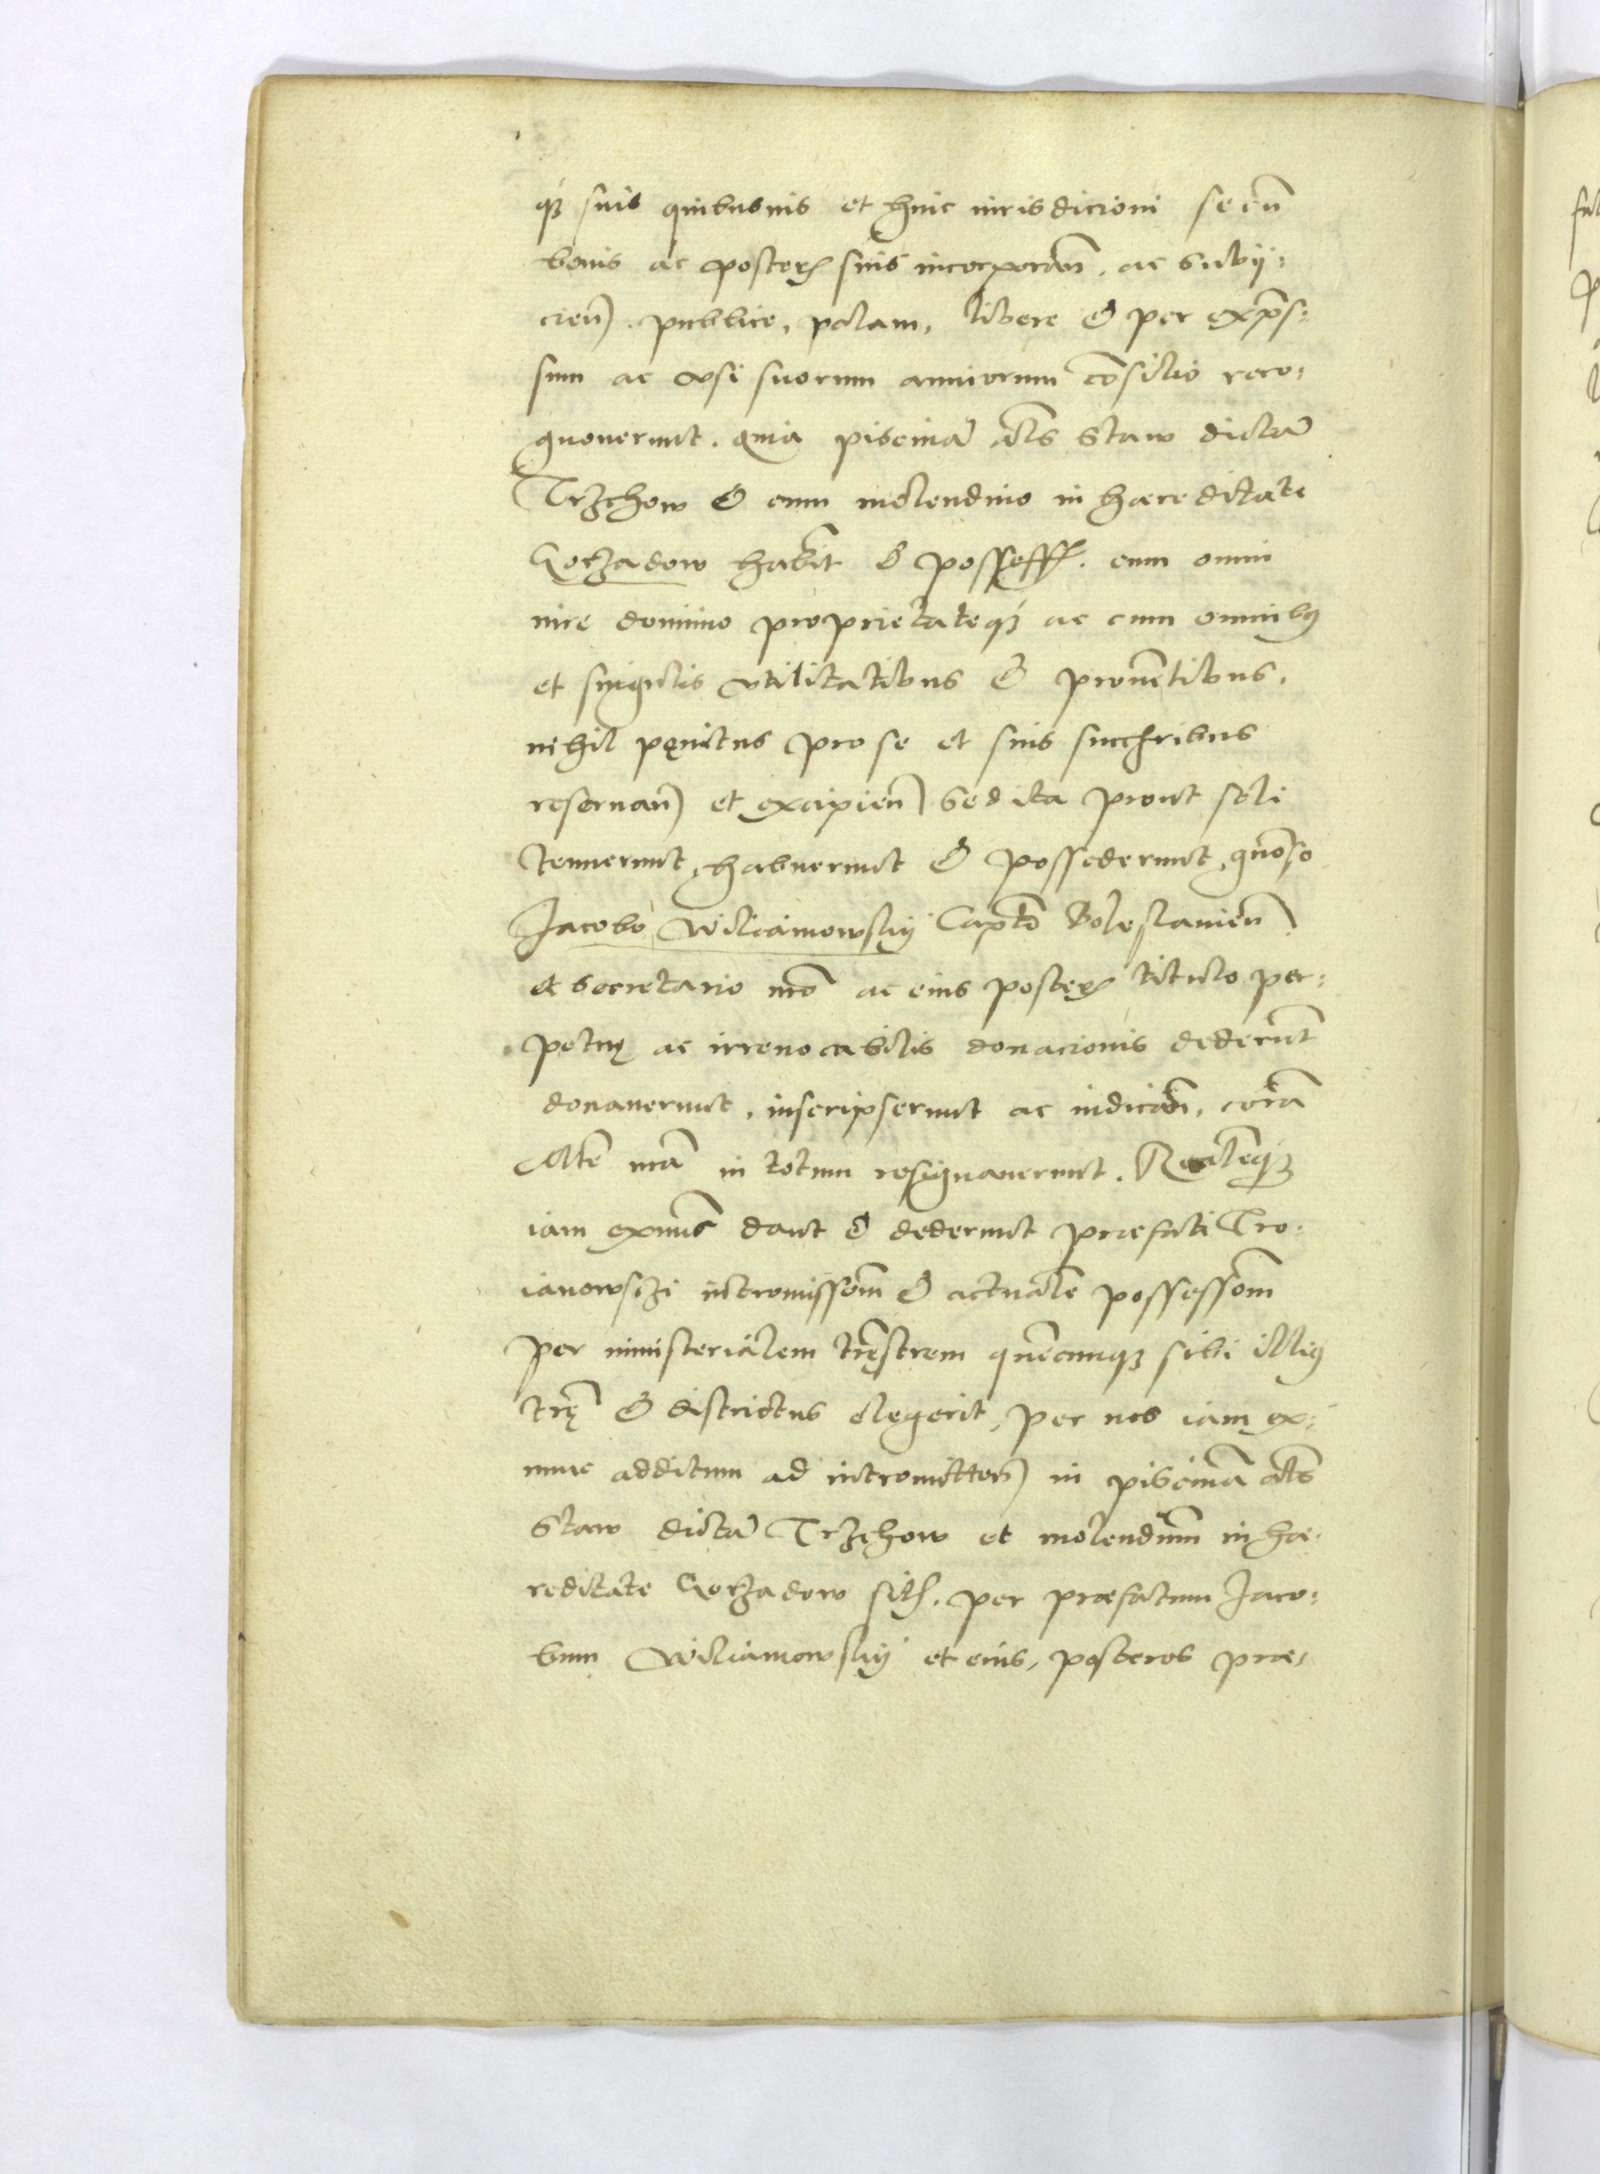 q3 suis quibusuis et huic iurisdicioni se cũ
bonis ac posteris suis incorporan̄. ac subij:
cien̄. publice, palam, libere & per expres:
sum ac vsi suorum amicorum cōsilio reco:
gnouerunt. quia piscinā als Staw dictā
Trzchow & cum molendino in haereditate
Gorzadow habit & possess. cum omni
iure dominio proprietateq3 ac cum omnib9
et singulis vtilitatibus & prouētibus.
nihil pęnitus pro se et suis succribus
reseruan̄ et excipien̄ sed ita prout soli
tenuerunt, habuerunt & possederunt, gnōso
Jacobo Wiliamowskij Captō Boleslauien̄
et secretario nr̄o ac eius posteris titulo per:
petuę ac irreuocabilis donacionis dederūt
donauerunt, inscripserunt ac indican̄. corā
Mte nr̄a in totum resignauerunt. Realēq3
iam exnūc dant & dederunt praefati Tro:
ianowsczi intromissōm & actualē possessōm
per ministerialem tręstrem quēcunq3 sibi illi9
trę & districtus elegerit, per nos iam ex:
nunc additum ad intromitten̄ in piscinā als
Staw dictā Trzchow et molendinū in hae:
reditate Gorzadow sit. per praefatum Jaco:
bum Wiliamowskij et eius, posteros prae: